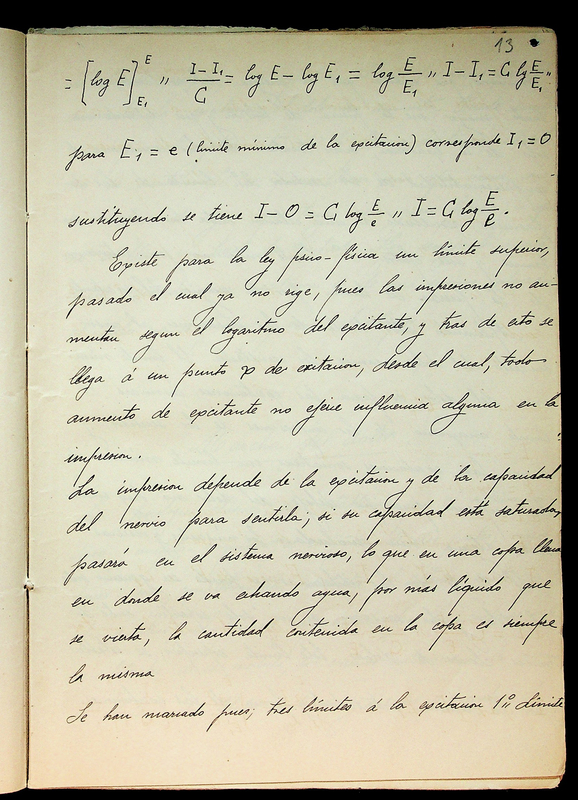 13
= [log E]_{E_1}^{E} „ \frac{I-I_1}{C} = log E - log E_1 = log \frac{E}{E_1} „ I - I_1 = C lg \frac{E}{E_1} „
para E_1 = e (limite mínimo de la excitacion) corresponde I_1 = 0
sustituyendo se tiene I - 0 = C log \frac{E}{e} „ I = C log \frac{E}{e}.
Existe para la ley psico-física un límite superior,
pasado el cual ya no rige, pues las impresiones no au-
mentan segun el logaritmo del excitante, y tras de esto se
llega á un punto de exitacion, desde el cual, todo
aumento de excitante no ejerce influencia alguna en la
impresion.
La impresion depende de la excitacion y de la capacidad
del nervio para sentirla; si su capacidad está saturada,
pasará en el sistema nervioso, lo que en una copa llena
en donde se va echando agua, por más líquido que
se vierta, la cantidad contenida en la copa es siempre
la misma
Se han marcado pues; tres límites á la excitacion 1º„ Límite